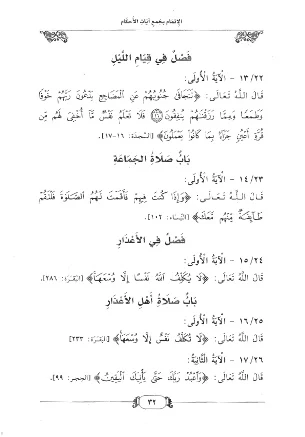 الإلمام بجمع آيات الأحكام
فَصْلٌ فِي قِيَامِ اللَّيْلِ
١٣/٢٢ - الآيَةُ الأُولَى:
قَالَ اللَّهُ تَعَالَى: ﴿تَتَجَافَى جُنُوبُهُمْ عَنِ الْمَضَاجِعِ يَدْعُونَ رَبَّهُمْ خَوْفًا
وَطَمَعًا وَمِمَّا رَزَقْنَاهُمْ يُنفِقُونَ ﴿١٦﴾ فَلَا تَعْلَمُ نَفْسٌ مَّا أُخْفِيَ لَهُم مِّن
قُرَّةِ أَعْيُنٍ جَزَاءً بِمَا كَانُوا يَعْمَلُونَ﴾ [السَّجْدَة: ١٦-١٧].
بَابُ صَلَاةِ الْجَمَاعَةِ
١٤/٢٣ - الآيَةُ الأُولَى:
قَالَ اللَّهُ تَعَالَى: ﴿وَإِذَا كُنتَ فِيهِمْ فَأَقَمْتَ لَهُمُ الصَّلَوٰةَ فَلْتَقُمْ
طَائِفَةٌ مِّنْهُم مَّعَكَ﴾ [النِّسَاء: ١٠٢].
فَصْلٌ فِي الأَعْذَارِ
١٥/٢٤ - الآيَةُ الأُولَى:
قَالَ اللَّهُ تَعَالَى: ﴿لَا يُكَلِّفُ اللَّهُ نَفْسًا إِلَّا وُسْعَهَا﴾ [البَقَرَة: ٢٨٦].
بَابُ صَلَاةِ أَهْلِ الأَعْذَارِ
١٦/٢٥ - الآيَةُ الأُولَى:
قَالَ اللَّهُ تَعَالَى: ﴿لَا تُكَلَّفُ نَفْسٌ إِلَّا وُسْعَهَا﴾ [البَقَرَة: ٢٣٣]
١٧/٢٦ - الآيَةُ الثَّانِيَةُ:
قَالَ اللَّهُ تَعَالَى: ﴿وَاعْبُدْ رَبَّكَ حَتَّىٰ يَأْتِيَكَ الْيَقِينُ﴾ [الحِجر: ٩٩].
٣٢